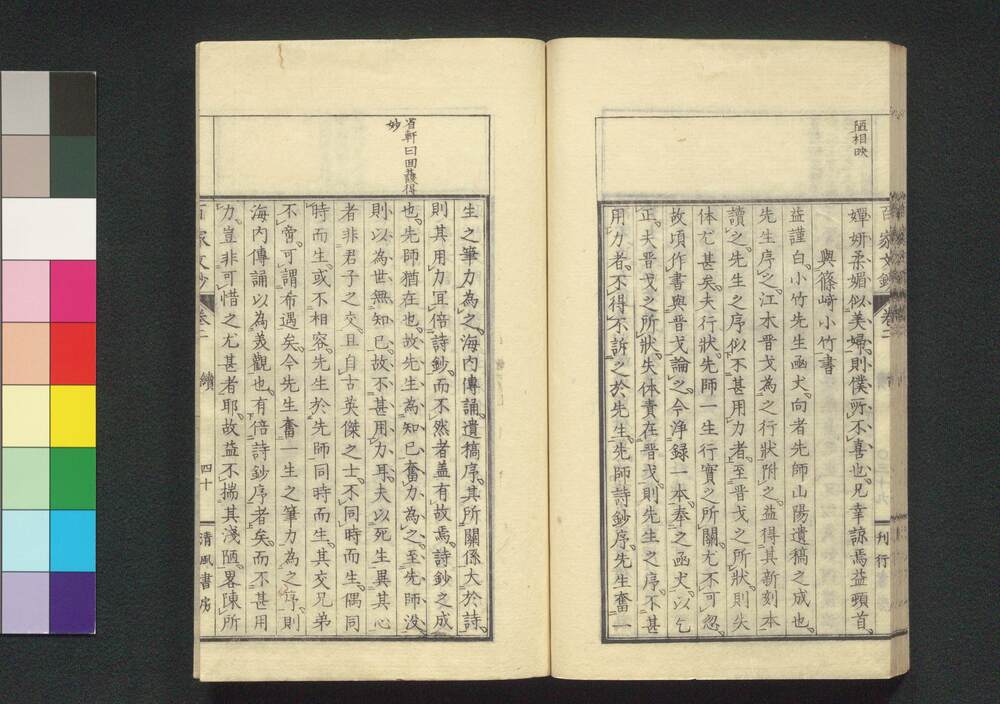 陋相映
嬋妍柔媚似美婦。則僕所不喜也。兄幸諒焉。益頓首。
與篠﨑小竹書
益謹白。小竹先生函丈。向者先師山陽遺稿之成也。
先生序之。江木晋戈為之行狀附之。益得其新刻本
讀之。先生之序似不甚用力者。至晋戈之所狀。則失
体尤甚矣。夫行狀。先師一生行實之所關。尤不可忽。
故頃作書與晋戈論之。今淨録一本。奉之函丈。以乞
正。夫晋戈之所狀。失体責在晋戈。則先生之序。不甚
用力者。不得不訴之於先生。先師詩鈔序。先生奮一
百家文鈔 卷二
刊行
省軒曰回護得
妙
生之筆力為之。海內傳誦。遺稿序。其所關係大於詩。
則其用力冝倍詩鈔。而不然者。蓋有故焉。詩鈔之成
也。先師猶在也。故先生為知己奮力為之。至先師沒。
則以為世無知己。故不甚用力耳。夫以死生異其心
者。非君子之交。且自古英傑之士。不同時而生。偶同
時而生。或不相容。先生於先師同時而生。其交兄弟
不啻。可謂希遇矣。今先生奮一生之筆力為之序。則
海內傳誦以為美觀也。有倍詩鈔序者矣。而不甚用
力。豈非可惜之尤甚者耶。故益不揣其淺陋。畧陳所
百家文鈔 卷二 續 四十 清風書房